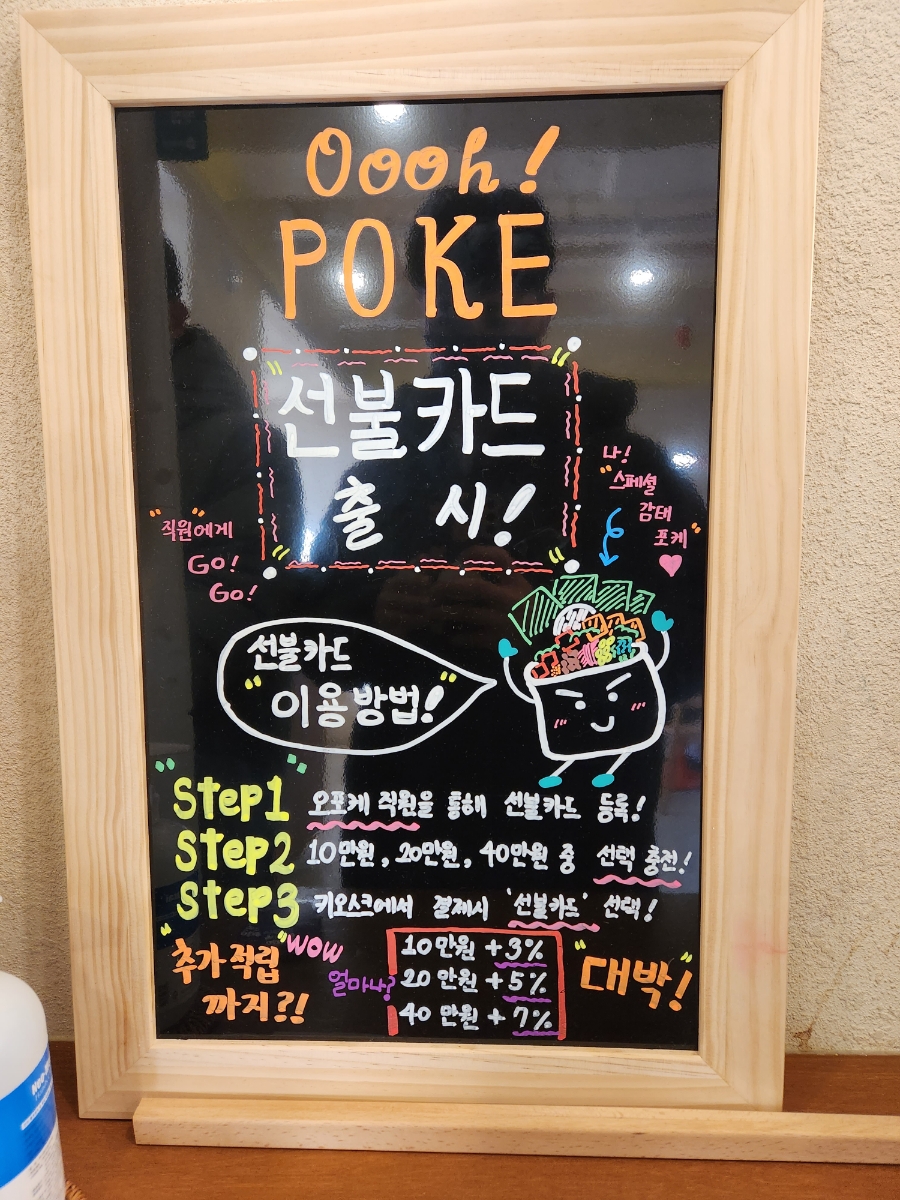 Oooh!
POKE
선불카드
출 시!
"직원에게
Go!
Go!"
나!
"스페셜
감태
포케"
선불카드
"이용방법!"
"Step1" 오포케 직원을 통해 선불카드 등록!
Step2 10만원, 20만원, 40만원 중 선택 충전!
Step3 키오스크에서 결제시 '선불카드' 선택!
"추가적립
까지?!
"wow
얼마나?
10만원 + 3%
20만원 + 5%
40만원 + 7%
"대박!"